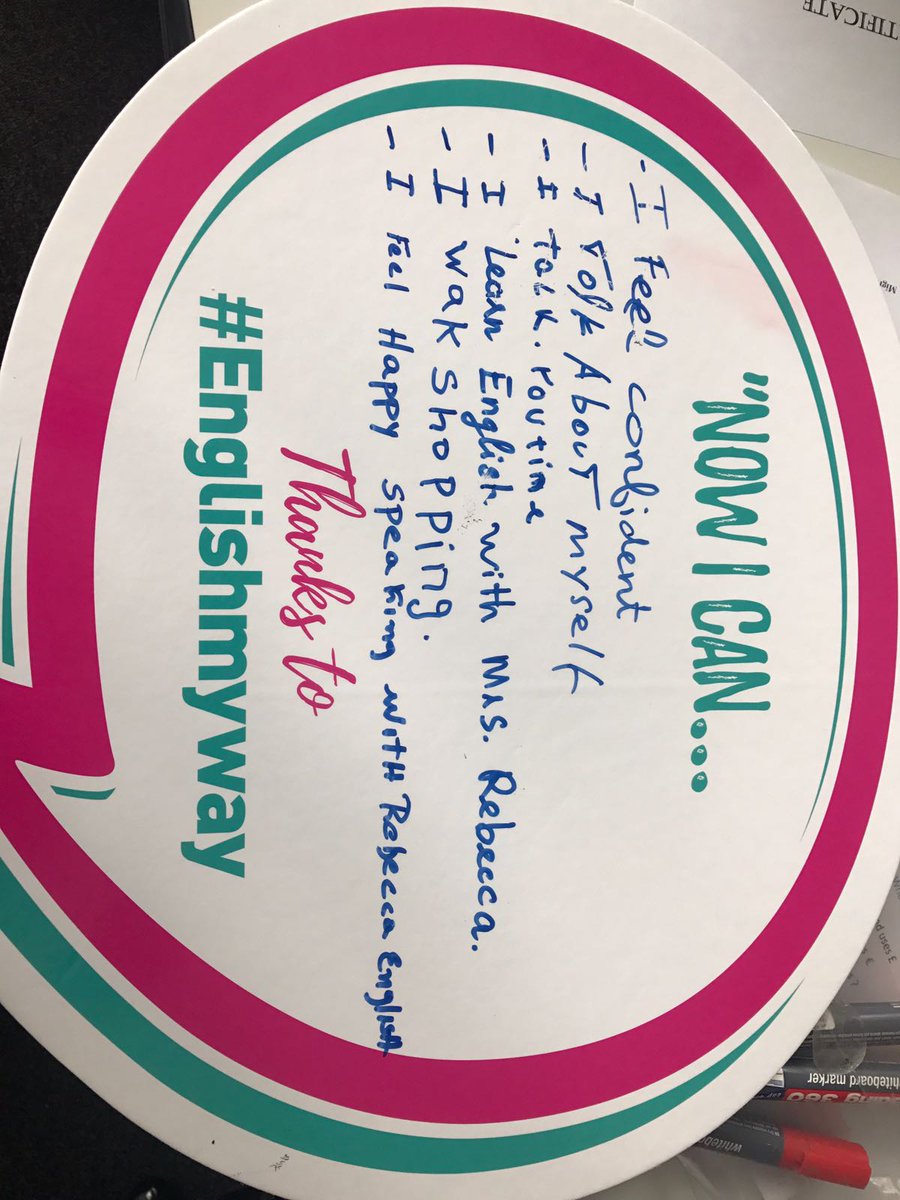 "NOW I CAN...
- I Feel confident
- I Talk About myself
- I talk. routine
- I learn English with Mrs. Rebecca.
- I wak shopping.
- I Feel Happy speaking with Rebecca English
Thanks to
#Englishmyway
TIFICATE
whiteboard marker
360